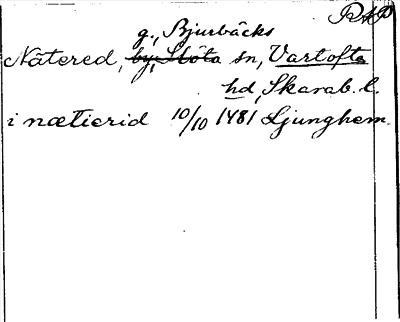 RAP
g., Bjurbäcks
Nätered, by, Slöta sn, Vartofta
hd, Skarab. l.
i nætierid 10/10 1481 Ljunghem.